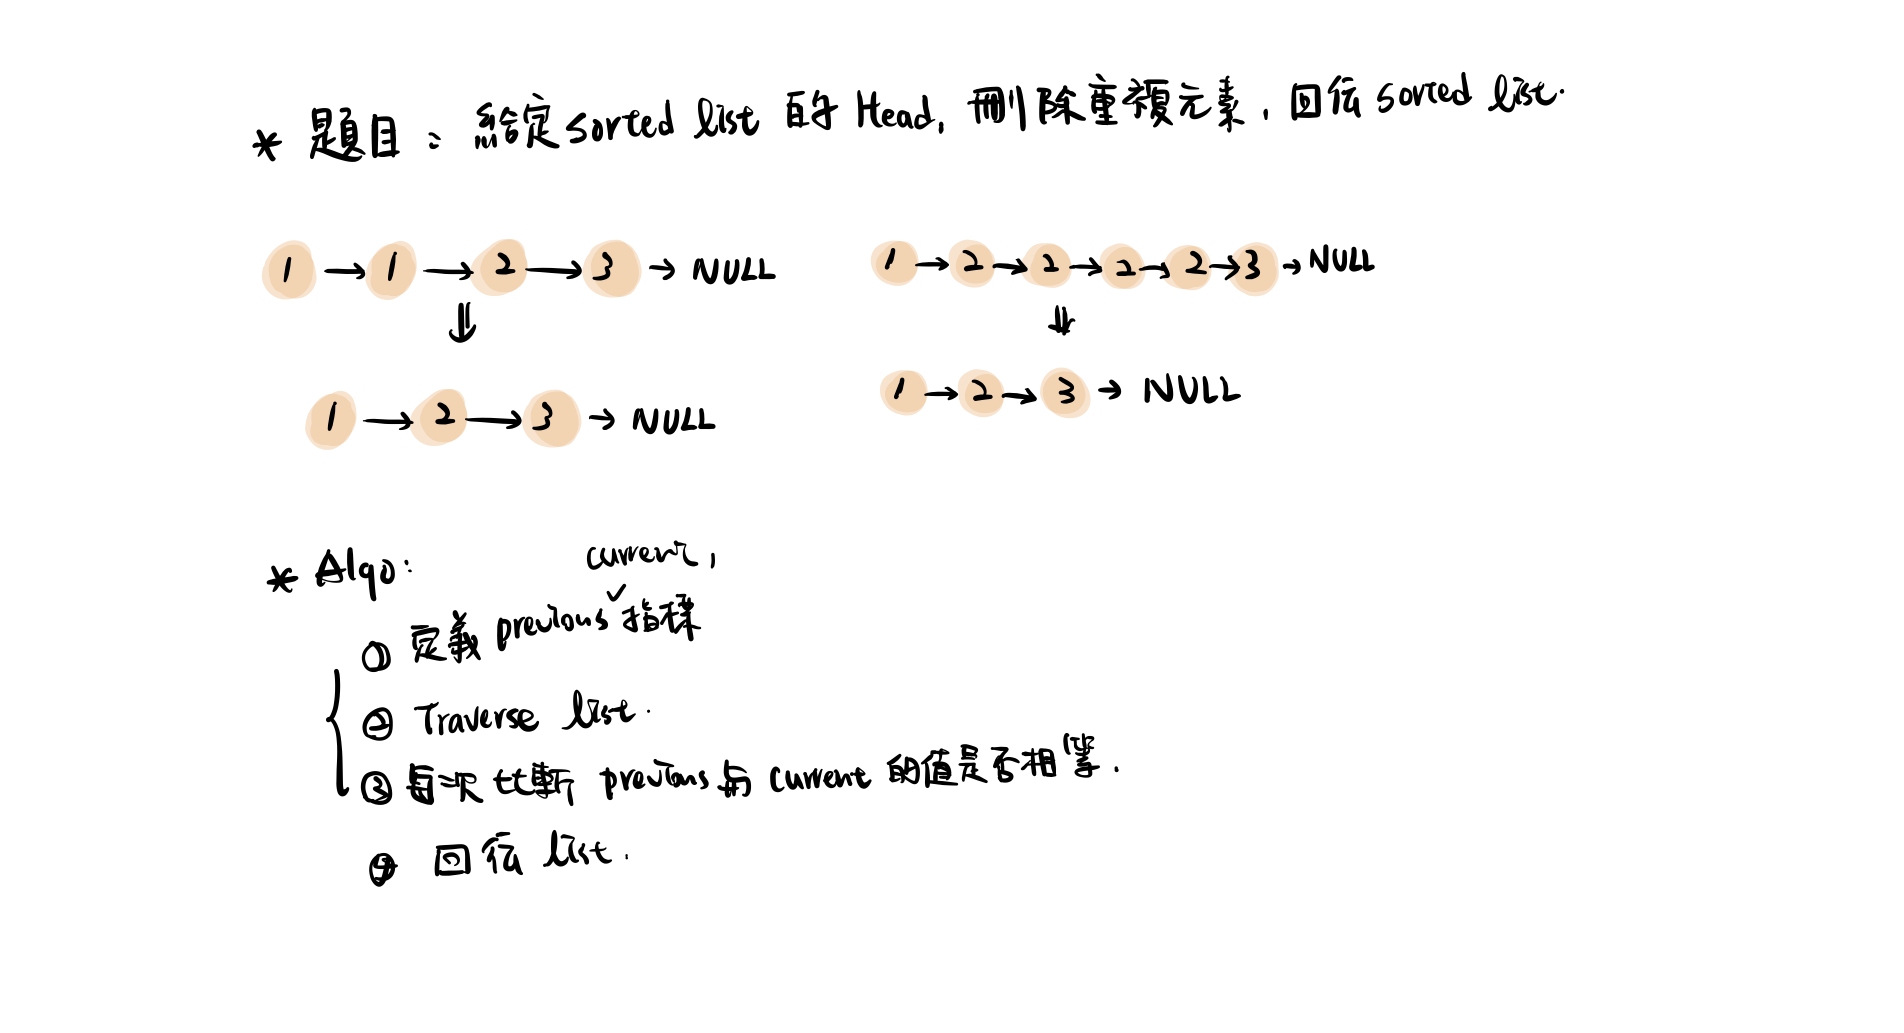 * 題目：給定 sorted list 的 Head, 刪除重複元素, 回傳 sorted list.
1 → 1 → 2 → 3 → NULL
⇓
1 → 2 → 3 → NULL
1 → 2 → 2 → 2 → 2 → 3 → NULL
⇓
1 → 2 → 3 → NULL
* Algo:
current,
① 定義 previous ✓ 指標
② Traverse list.
③ 每次比較 previous 与 current 的值是否相等.
④ 回傳 list.